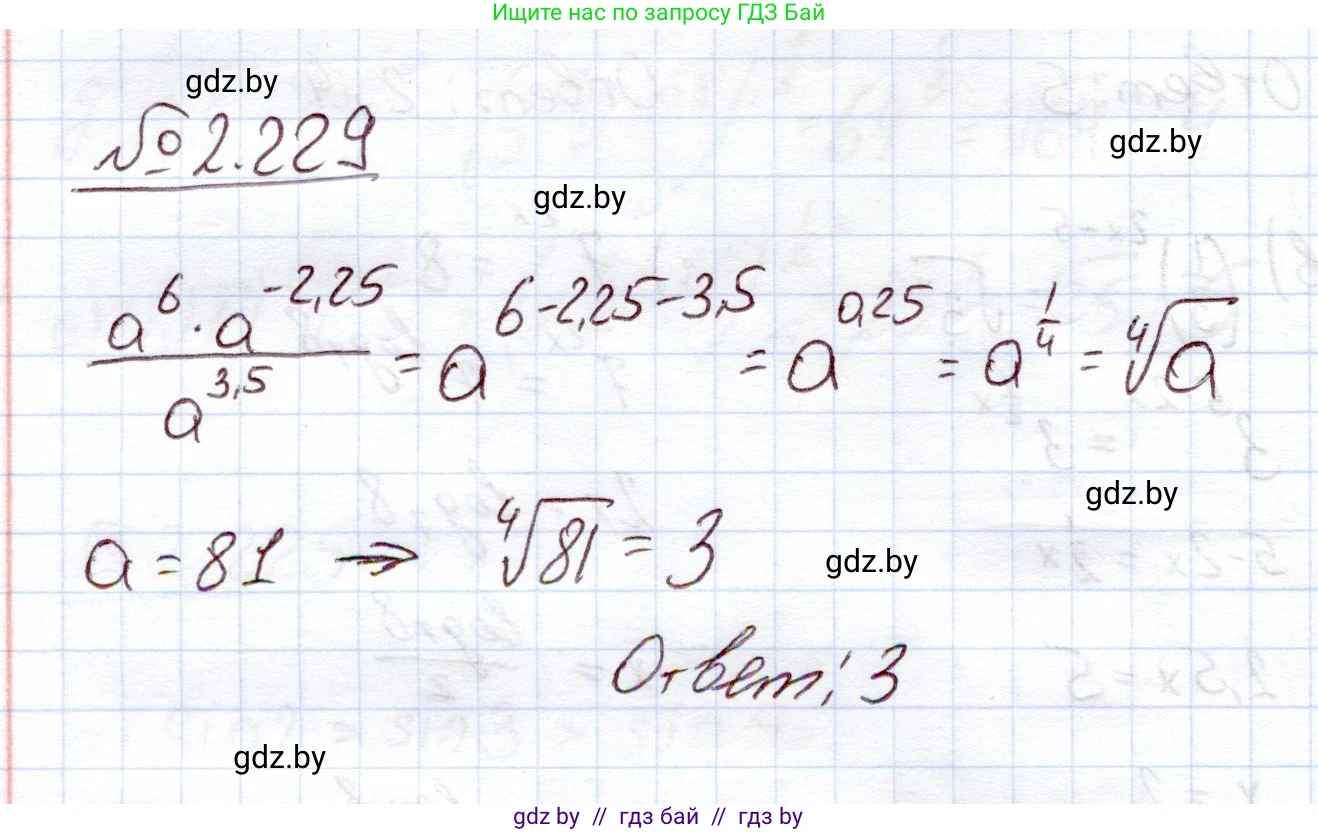 Ищите нас по запросу ГДЗ Бай
gdz.by
№ 2.229
gdz.by
gdz.by
a^6 · a^{-2,25} / a^{3,5} = a^{6-2,25-3,5} = a^{0,25} = a^{1/4} = ⁴√a
gdz.by
a = 81 → ⁴√81 = 3
gdz.by
Ответ: 3
gdz.by
gdz.by // гдз бай // гдз by